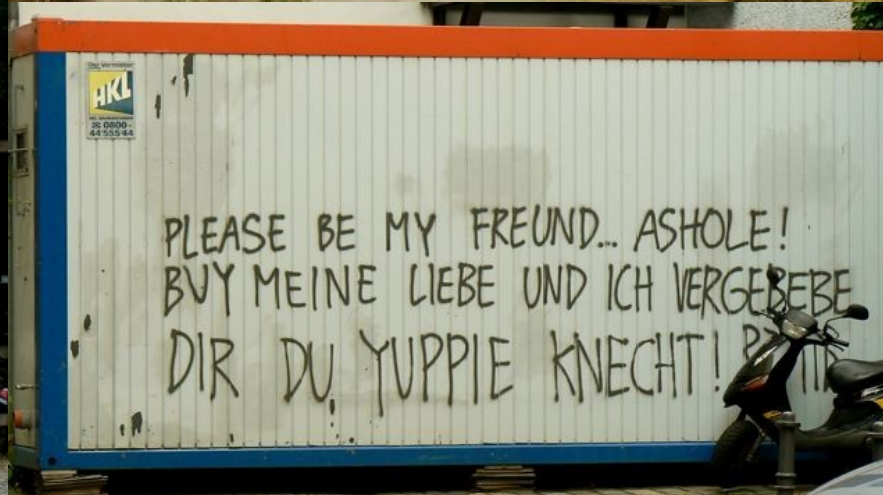 Der Vermieter
HKL
HKL BAUMASCHINEN
0800-
44 555 44
PLEASE BE MY FREUND... ASHOLE!
BUY MEINE LIEBE UND ICH VERGEBEBE
DIR DU YUPPIE KNECHT!